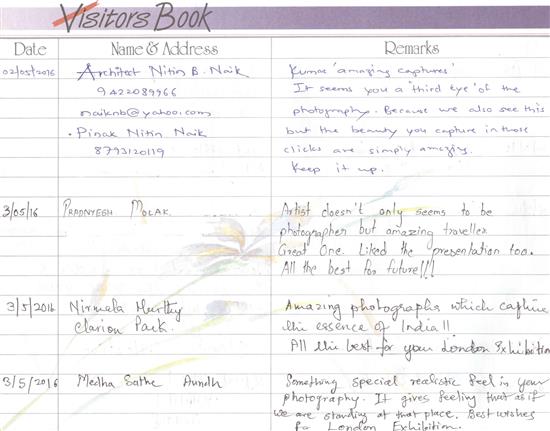 Visitors Book
Date Name & Address Remarks
02/05/2016 Architect Nitin B. Naik Kumar 'amazing captures'
9422089966 It seems you a 'third eye' of the
naiknb@yahoo.com photography. Because we also see this
• Pinak Nitin Naik but the beauty you capture in those
8793120119 clicks are simply amazing.
Keep it up.
3/05/16 PRADNYESH MOLAK. Artist doesn't only seems to be
photographer but amazing traveller
Great One. Liked the presentation too.
All the best for future!!!
3/5/2016 Nirmala Murthy Amazing photographs which capture
Clarion Park. the essence of India!!
All the best for your London Exhibition
3/5/2016 Medha Sathe Aundh Something special realistic feel in your
photography. It gives feeling that as if
we are standing at that place. Best wishes
for London Exhibition.